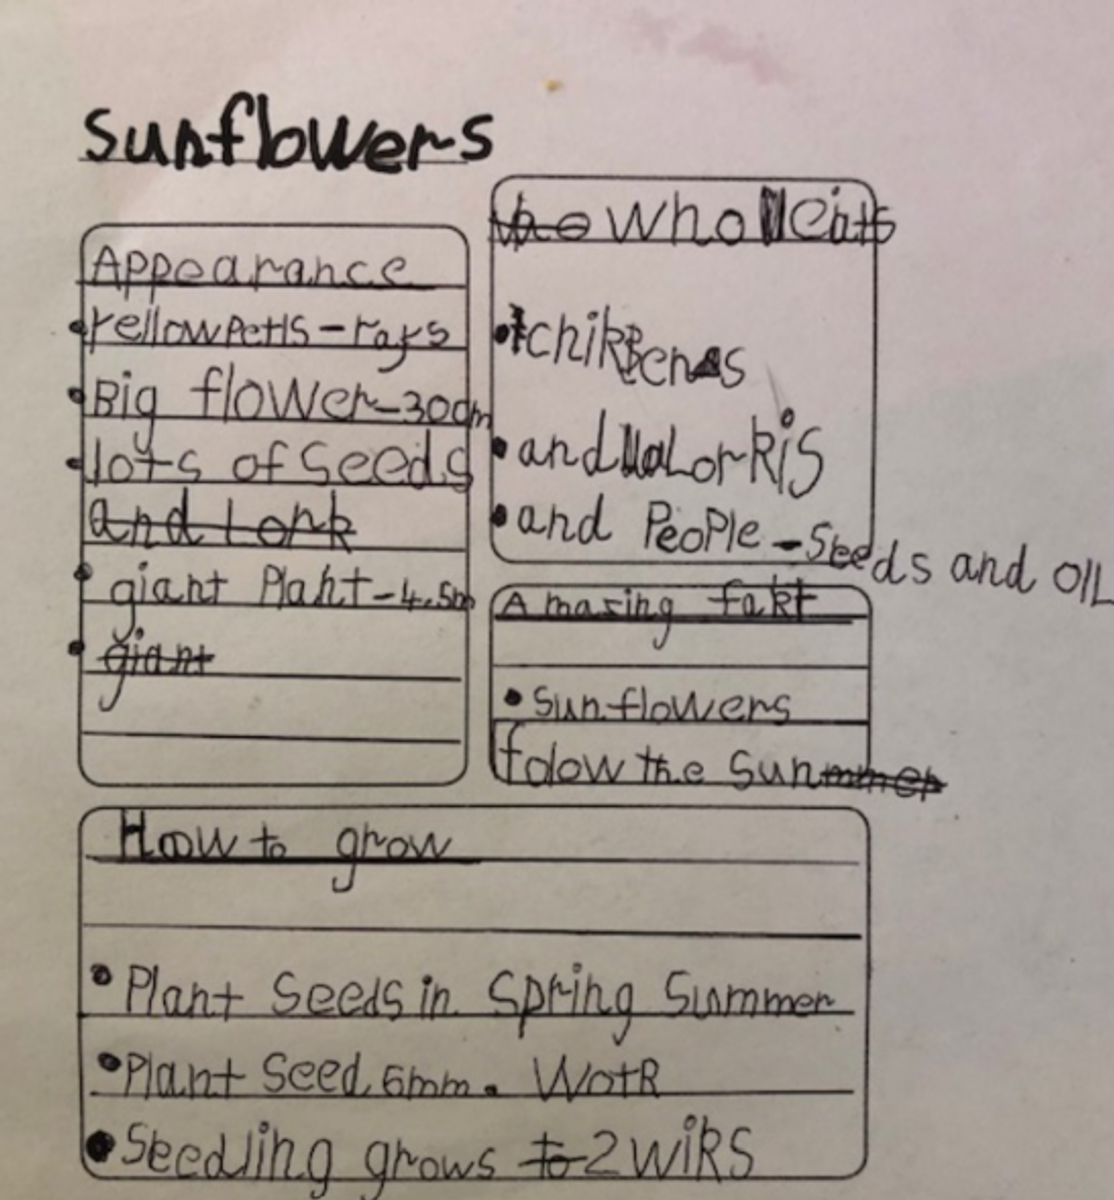 Sunflowers
Appearance
• yellow Petls - rays
• Big flower - 30cm
• lots of seeds
and lork
• giant Plant - 4.5m
• giant
who eats
• chikens
• and Lorkis
• and PeoPle - Seeds and OIL
Amazing fakt
• Sunflowers
folow the Sunmmer
How to grow
• Plant Seeds in Spring Summer
• Plant Seed 6mm. WotR
• Seedling grows to 2 wiks